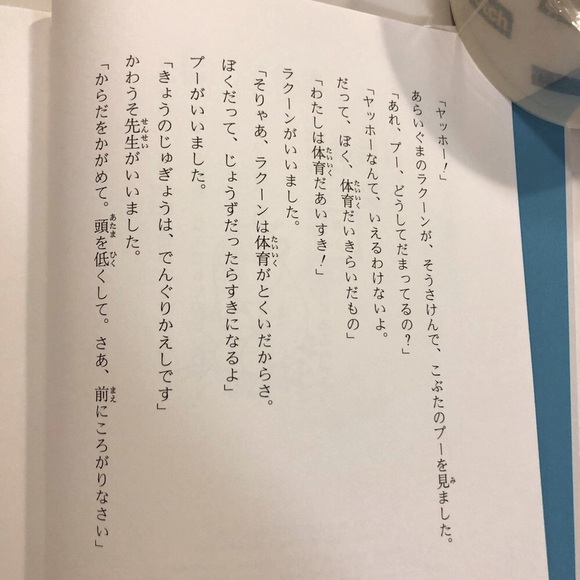 「ヤッホー！」
あらいぐまのラクーンが、そうさけんで、こぶたのプーを見ました。
「あれ、プー、どうしてだまってるの？」
「ヤッホーなんて、いえるわけないよ。
だって、ぼく、体育だいきらいだもの」
「わたしは体育だあいすき！」
ラクーンがいいました。
「そりゃあ、ラクーンは体育がとくいだからさ。
ぼくだって、じょうずだったらすきになるよ」
プーがいいました。
「きょうのじゅぎょうは、でんぐりかえしです」
かわうそ先生がいいました。
「からだをかがめて。頭を低くして。さあ、前にころがりなさい」